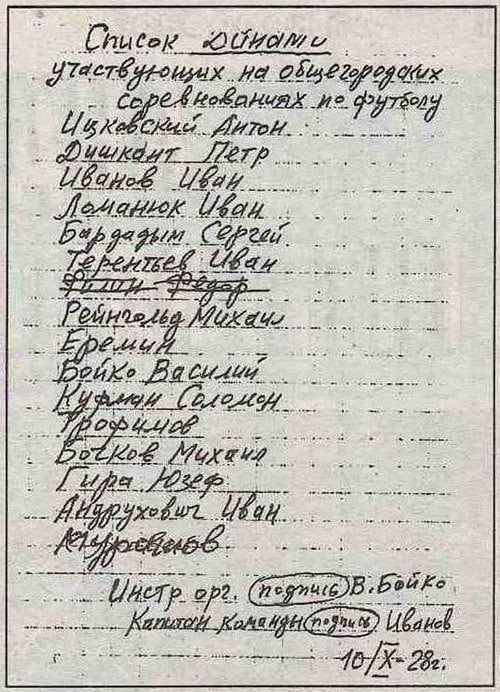 Список Дінами
участвующих на общегородских
соревнованиях по футболу
Ицковский Антон
Дишкант Петр
Иванов Иван
Ломанюк Иван
Бардадым Сергей
Терентьев Иван
Филин Фёдор
Рейнгольд Михаил
Еремин
Бойко Василий
Курман Соломон
Трофимов
Бочков Михаил
Гира Юзеф
Андрухович Иван
Инстр орг. подпись В. Бойко
Капитан команды подпись Иванов
10/IX-28г.